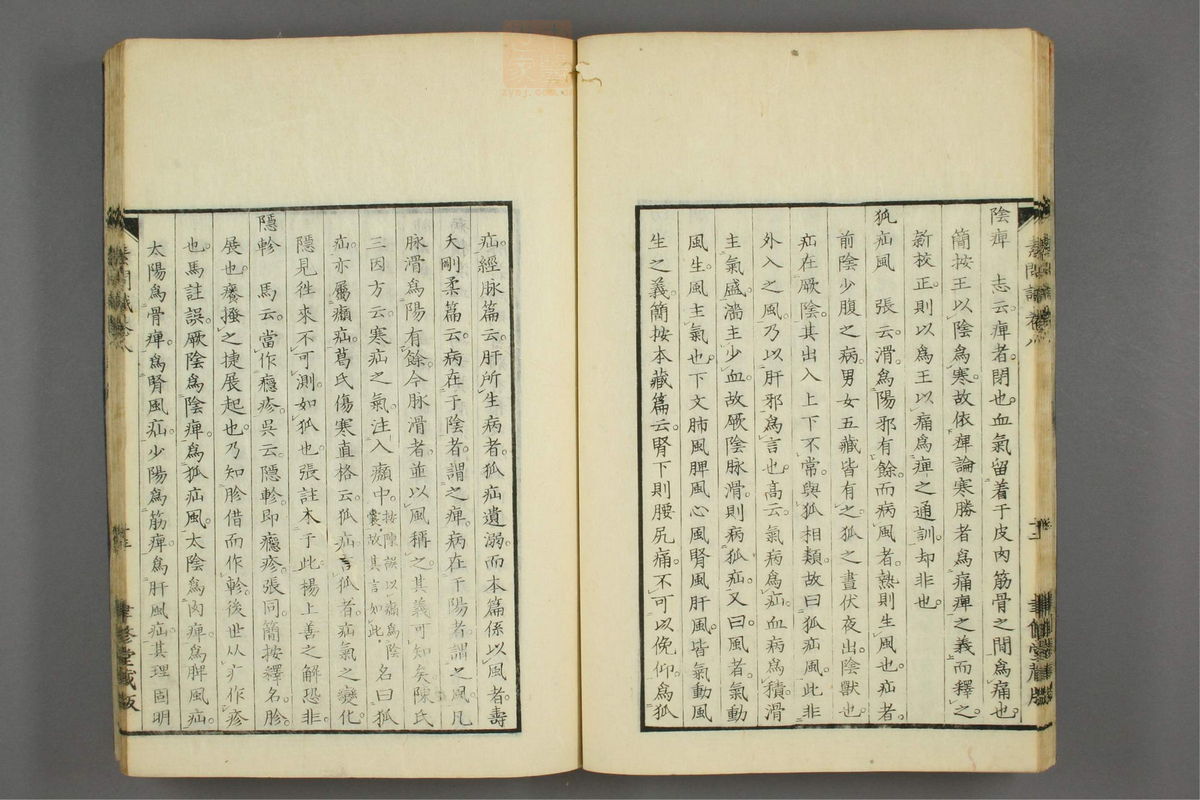 陰痺　志云。痺者。閉也。血氣留着于皮肉筋骨之間爲痛也。
簡按王以陰爲寒。故依痺論寒勝者爲痛痺之義而釋之。
新校正。則以爲王以痛爲痺之通訓。却非也。
狐疝風　張云。滑爲陽邪有餘。而病風者。熱則生風也。疝者。
前陰少腹之病。男女五藏皆有之。狐之晝伏夜出。陰獸也。
疝在厥陰。其出入上下不常。與狐相類。故曰狐疝風。此非
外入之風。乃以肝邪爲言也。高云。氣病爲疝。血病爲積。滑
主氣盛。濇主少血。故厥陰脉滑。則病狐疝。又曰風者。氣動
風生。風主氣也。下文肺風脾風心風腎風肝風。皆氣動風
生之義。簡按本藏篇云。腎下則腰尻痛。不可以俛仰。爲狐
疝。經脉篇云。肝所生病者。狐疝遺溺。而本篇係以風者。壽
夭剛柔篇云。病在于陰者。謂之痺。病在于陽者。謂之風。凡
脉滑爲陽有餘。今脉滑者。並以風稱之。其義可知矣。陳氏
三因方云。寒疝之氣。注入癩中。按陳誤以癩爲陰
囊。故其言如此。
名曰狐
疝。亦屬癩疝。葛氏傷寒直格云。狐疝言狐者。疝氣之變化。
隱見徃來不可測。如狐也。張註本于此。楊上善之解恐非。
隱軫　馬云。當作癮疹。吳云。隱軫。即癮疹。張同。簡按釋名。胗。
展也。癢搔之捷展起也。乃知胗借而作軫。後世从疒作疹
也。馬註誤。厥陰爲陰痺。爲狐疝風。太陰爲肉痺。爲脾風疝。
太陽爲骨痺。爲腎風疝。少陽爲筋痺。爲肝風疝。其理固明
聿修堂藏版